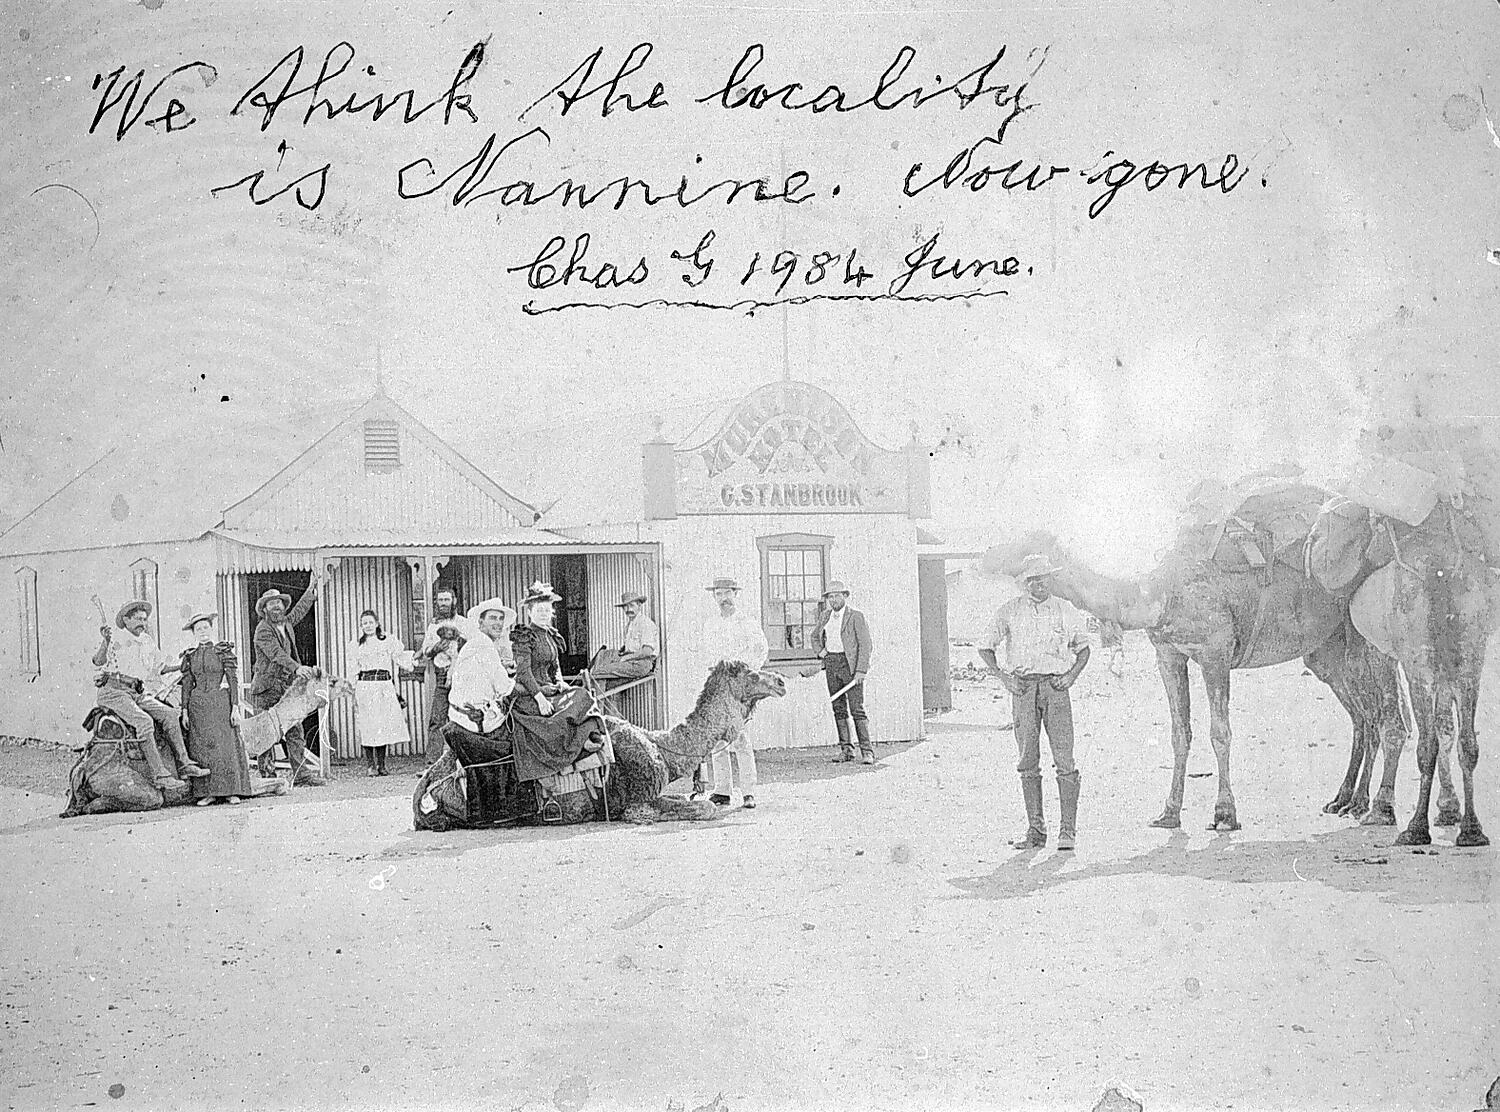 We think the locality
is Nannine. Now gone.
Chas G 1984 June.
HOTEL
C. STANBROOK